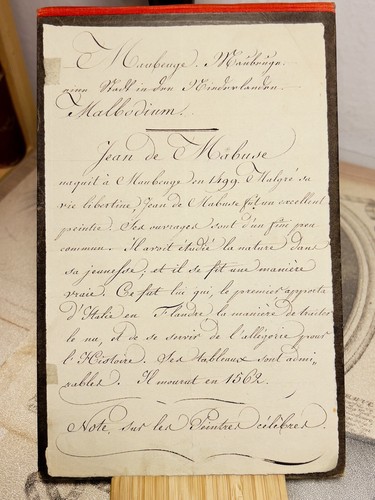 Maubeuge. Maubeuge.
eine Stadt in den Niederlanden.
Malbodium.
Jean de Mabuse
naquit à Maubeuge en 1499. Malgré sa
vie libertine, Jean de Mabuse fut un excellent
peintre. Ses ouvrages sont d'un fini peu
commun. Il avoit étudié la nature dans
sa jeunesse; et il se fit une manière
vraie. Ce fut lui qui, le premier apporta
d'Italie en Flandre la manière de traiter
le nu, et de se servir de l'allégorie pour
l'Histoire. Ses tableaux sont admi,
rables. Il mourut en 1562.
Note, sur les Peintres célèbres.